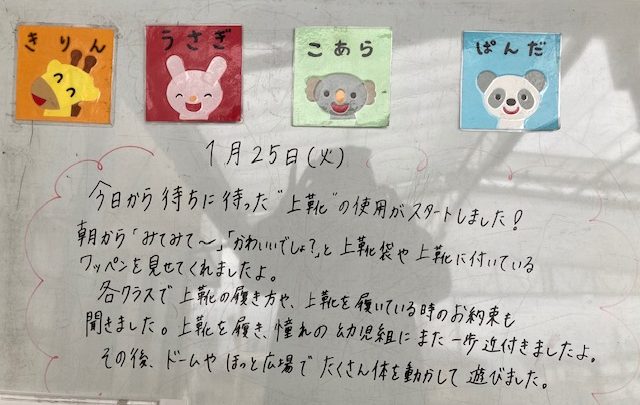 きりん
うさぎ
こあら
ぱんだ
1月25日(火)
今日から待ちに待った"上靴"の使用がスタートしました!
朝から「みてみて〜」「かわいいでしょ?」と上靴袋や上靴に付いている
ワッペンを見せてくれましたよ。
各クラスで上靴の履き方や、上靴を履いている時のお約束も
聞きました。上靴を履き、憧れの幼児組にまた一歩近付きましたよ。
その後、ドームやほっと広場でたくさん体を動かして遊びました。